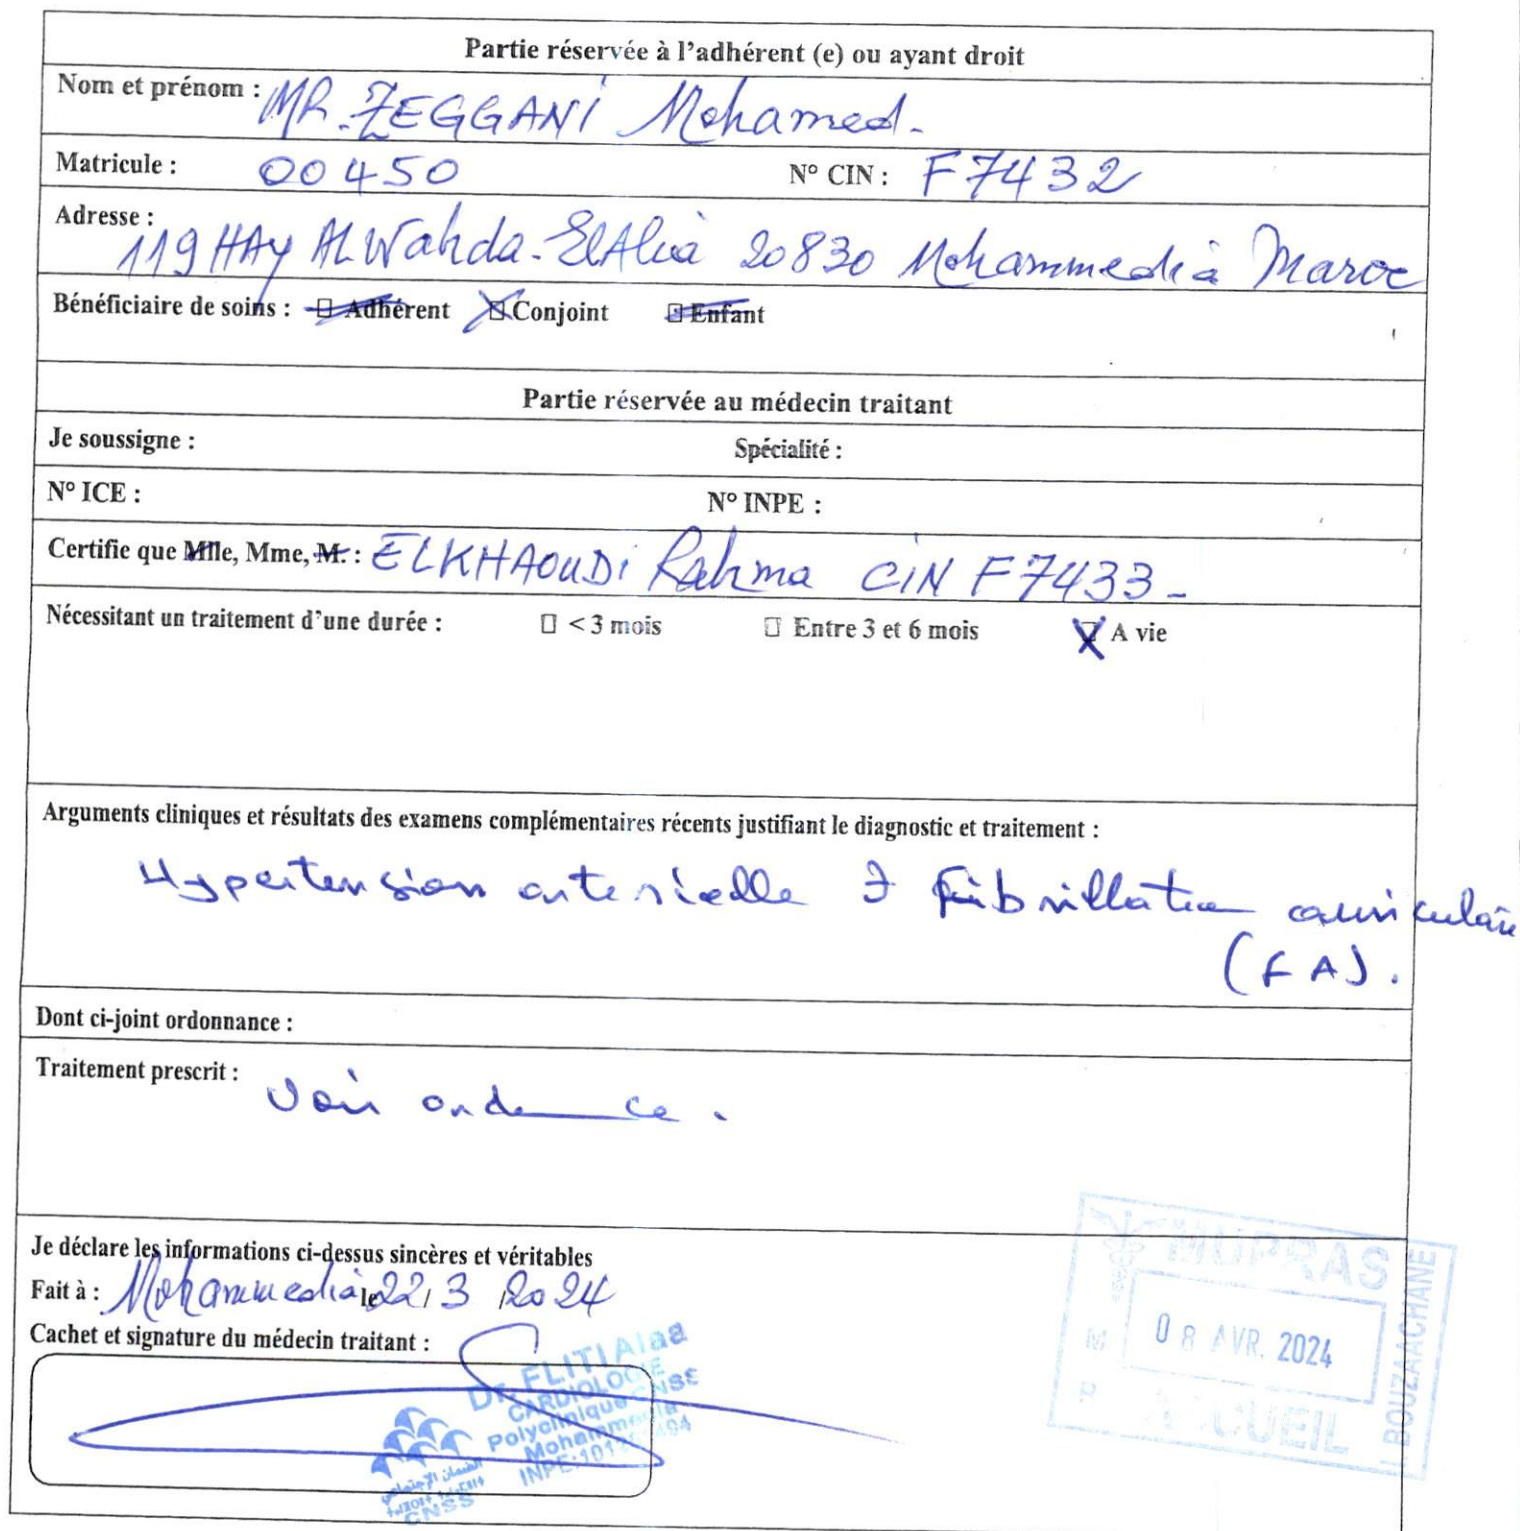 Partie réservée à l'adhérent (e) ou ayant droit
Nom et prénom : MR. ZEGGANI Mohamed.
Matricule : 00450 N° CIN : F7432
Adresse :
119 HAY ALWahda - ElAlia 20830 Mohammedia Maroc
Bénéficiaire de soins : Adhérent Conjoint Enfant
Partie réservée au médecin traitant
Je soussigne : Spécialité :
N° ICE : N° INPE :
Certifie que Mlle, Mme, M. : ELKHAOUDi Rahma CiN F7433 -
Nécessitant un traitement d'une durée : < 3 mois Entre 3 et 6 mois A vie
Arguments cliniques et résultats des examens complémentaires récents justifiant le diagnostic et traitement :
Hypertension arterielle Fibrillation auriculaire
(FA).
Dont ci-joint ordonnance :
Traitement prescrit : Voir ordonnance.
Je déclare les informations ci-dessus sincères et véritables
Fait à : Mohammedia le 22/3/2024
Cachet et signature du médecin traitant :
Dr. FLITI Alaa
CARDIOLOGIE
Polyclinique CNSS
Mohammedia
الضمان الإجتماعي
CNSS
MUPRAS
08 AVR. 2024
ACCUEIL
BOUZAACHANE